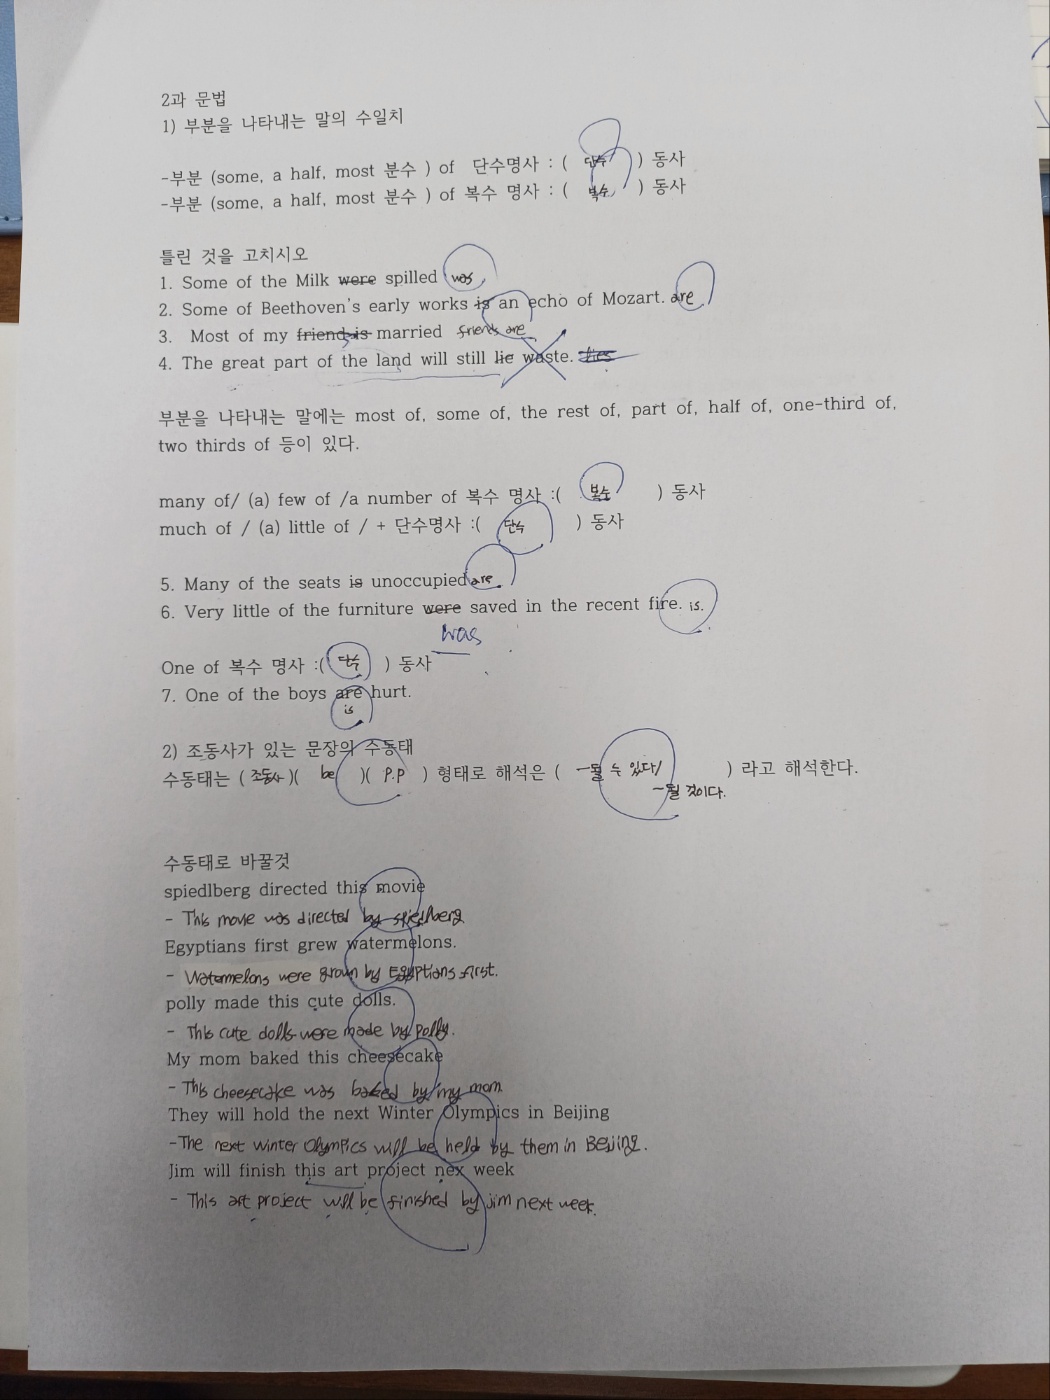 2과 문법
1) 부분을 나타내는 말의 수일치
-부분 (some, a half, most 분수 ) of 단수명사 : ( 단수 ) 동사
-부분 (some, a half, most 분수 ) of 복수 명사 : ( 복수 ) 동사
틀린 것을 고치시오
1. Some of the Milk were spilled was
2. Some of Beethoven's early works is an echo of Mozart. are
3. Most of my friend is married friends are
4. The great part of the land will still lie waste. lies
부분을 나타내는 말에는 most of, some of, the rest of, part of, half of, one-third of,
two thirds of 등이 있다.
many of/ (a) few of /a number of 복수 명사 :( 복수 ) 동사
much of / (a) little of / + 단수명사 :( 단수 ) 동사
5. Many of the seats is unoccupied are
6. Very little of the furniture were saved in the recent fire. is.
was
One of 복수 명사 :( 단수 ) 동사
7. One of the boys are hurt.
is
2) 조동사가 있는 문장의 수동태
수동태는 ( 조동사 )( be )( P.P ) 형태로 해석은 ( ~될 수 있다/ ) 라고 해석한다.
~될 것이다.
수동태로 바꿀것
spiedlberg directed this movie
- This movie was directed by spiedlberg
Egyptians first grew watermelons.
- Watermelons were grown by Egyptians first.
polly made this cute dolls.
- This cute dolls were made by polly.
My mom baked this cheesecake
- This cheesecake was baked by my mom
They will hold the next Winter Olympics in Beijing
-The next winter Olympics will be held by them in Beijing.
Jim will finish this art project nex week
- This art project will be finished by jim next week.